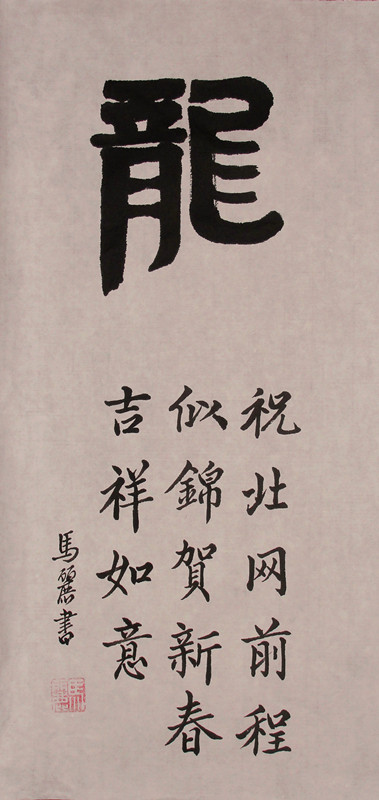 龍
祝北网前程
似錦賀新春
吉祥如意
馬麗書